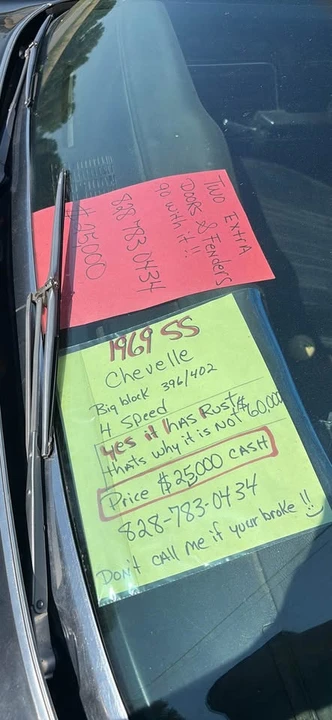 TWO EXTRA
DOORS & FENDERS
go with it!!
828 783 0434
$25000
1969 SS
Chevelle
Big block 396/402
4 Speed
yes it HAS RUST
thats why it is NOT $60,000
Price $25000 CASH
828-783-0434
Don't CALL ME if your broke !!